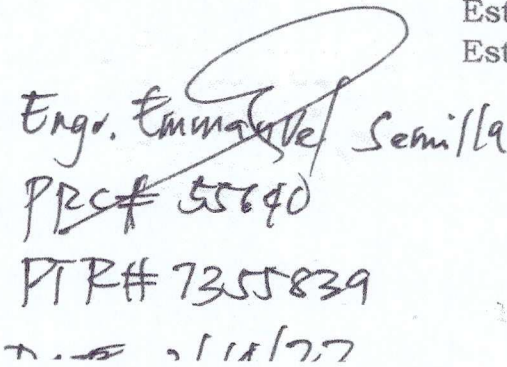 Est
Est
Engr. Emmanuel Semilla
PRC# 55640
PTR# 7355839